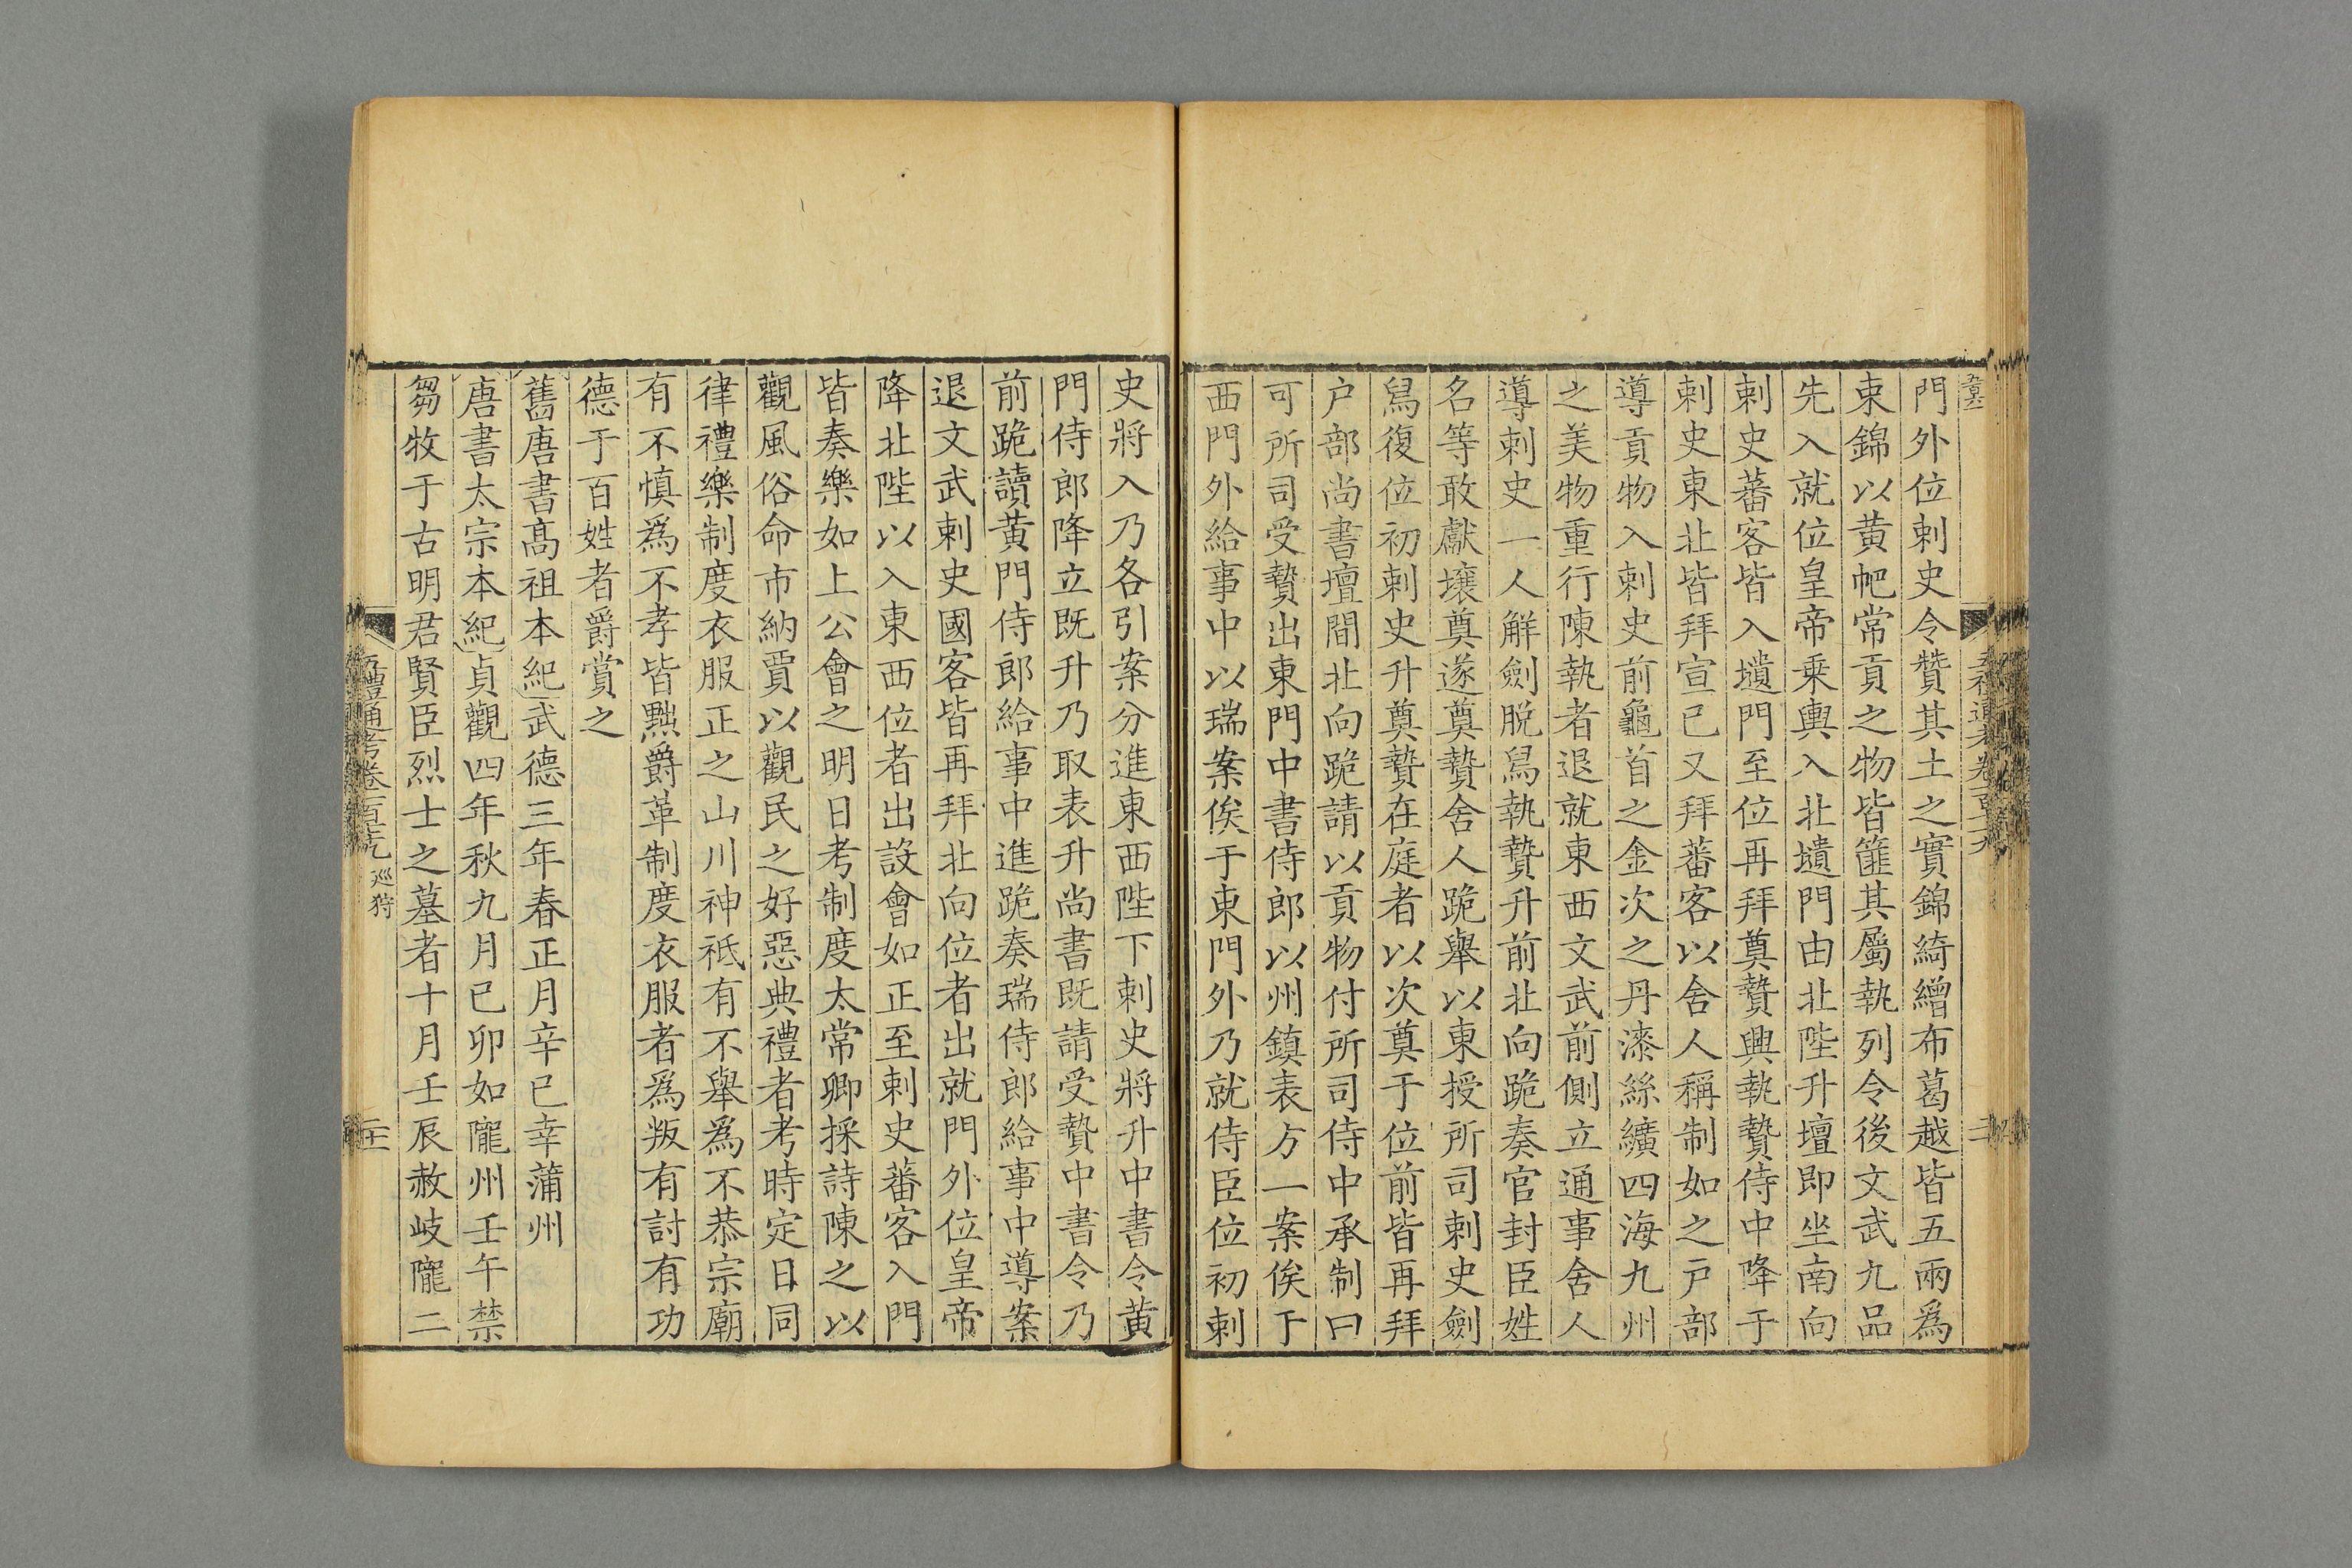 門外位刺史令贊其土之實錦綺繒布葛越皆五兩爲
束錦以黄帊常貢之物皆篚其屬執列令後文武九品
先入就位皇帝乗輿入北壝門由北陛升壇即坐南向
刺史蕃客皆入壝門至位再拜奠贄興執贄侍中降于
刺史東北皆拜宣已又拜蕃客以舍人稱制如之戸部
導貢物入刺史前龜首之金次之丹漆絲纊四海九州
之美物重行陳執者退就東西文武前側立通事舍人
導刺史一人解劍脱舄執贄升前北向跪奏官封臣姓
名等敢獻壤奠遂奠贄舍人跪舉以東授所司刺史劍
舄復位初刺史升奠贄在庭者以次奠于位前皆再拜
户部尚書壇間北向跪請以貢物付所司侍中承制曰
可所司受贄出東門中書侍郎以州鎮表方一案俟于
西門外給事中以瑞案俟于東門外乃就侍臣位初刺
史將入乃各引案分進東西陛下刺史將升中書令黄
門侍郎降立既升乃取表升尚書既請受贄中書令乃
前跪讀黄門侍郎給事中進跪奏瑞侍郎給事中導案
退文武刺史國客皆再拜北向位者出就門外位皇帝
降北陛以入東西位者出設會如正至刺史蕃客入門
皆奏樂如上公會之明日考制度太常卿採詩陳之以
觀風俗命市納賈以觀民之好惡典禮者考時定日同
律禮樂制度衣服正之山川神祇有不舉爲不恭宗廟
有不慎爲不孝皆黜爵革制度衣服者爲叛有討有功
德于百姓者爵賞之
舊唐書髙祖本紀武德三年春正月辛已幸蒲州
唐書太宗本紀貞觀四年秋九月已卯如隴州壬午禁
芻牧于古明君賢臣烈士之墓者十月壬辰赦岐隴二
五禮通考卷一百七十九 巡狩